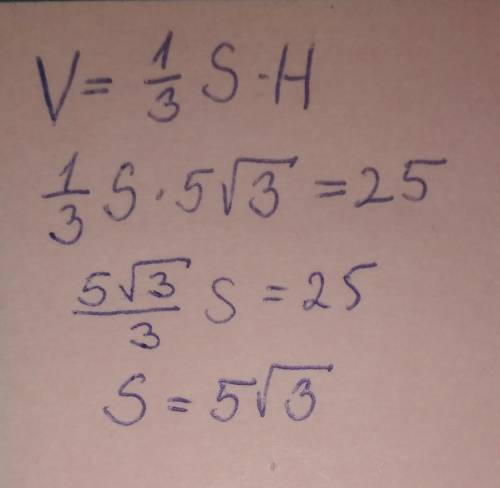 V = \frac{1}{3} S \cdot H
\frac{1}{3} S \cdot 5\sqrt{3} = 25
\frac{5\sqrt{3}}{3} S = 25
S = 5\sqrt{3}